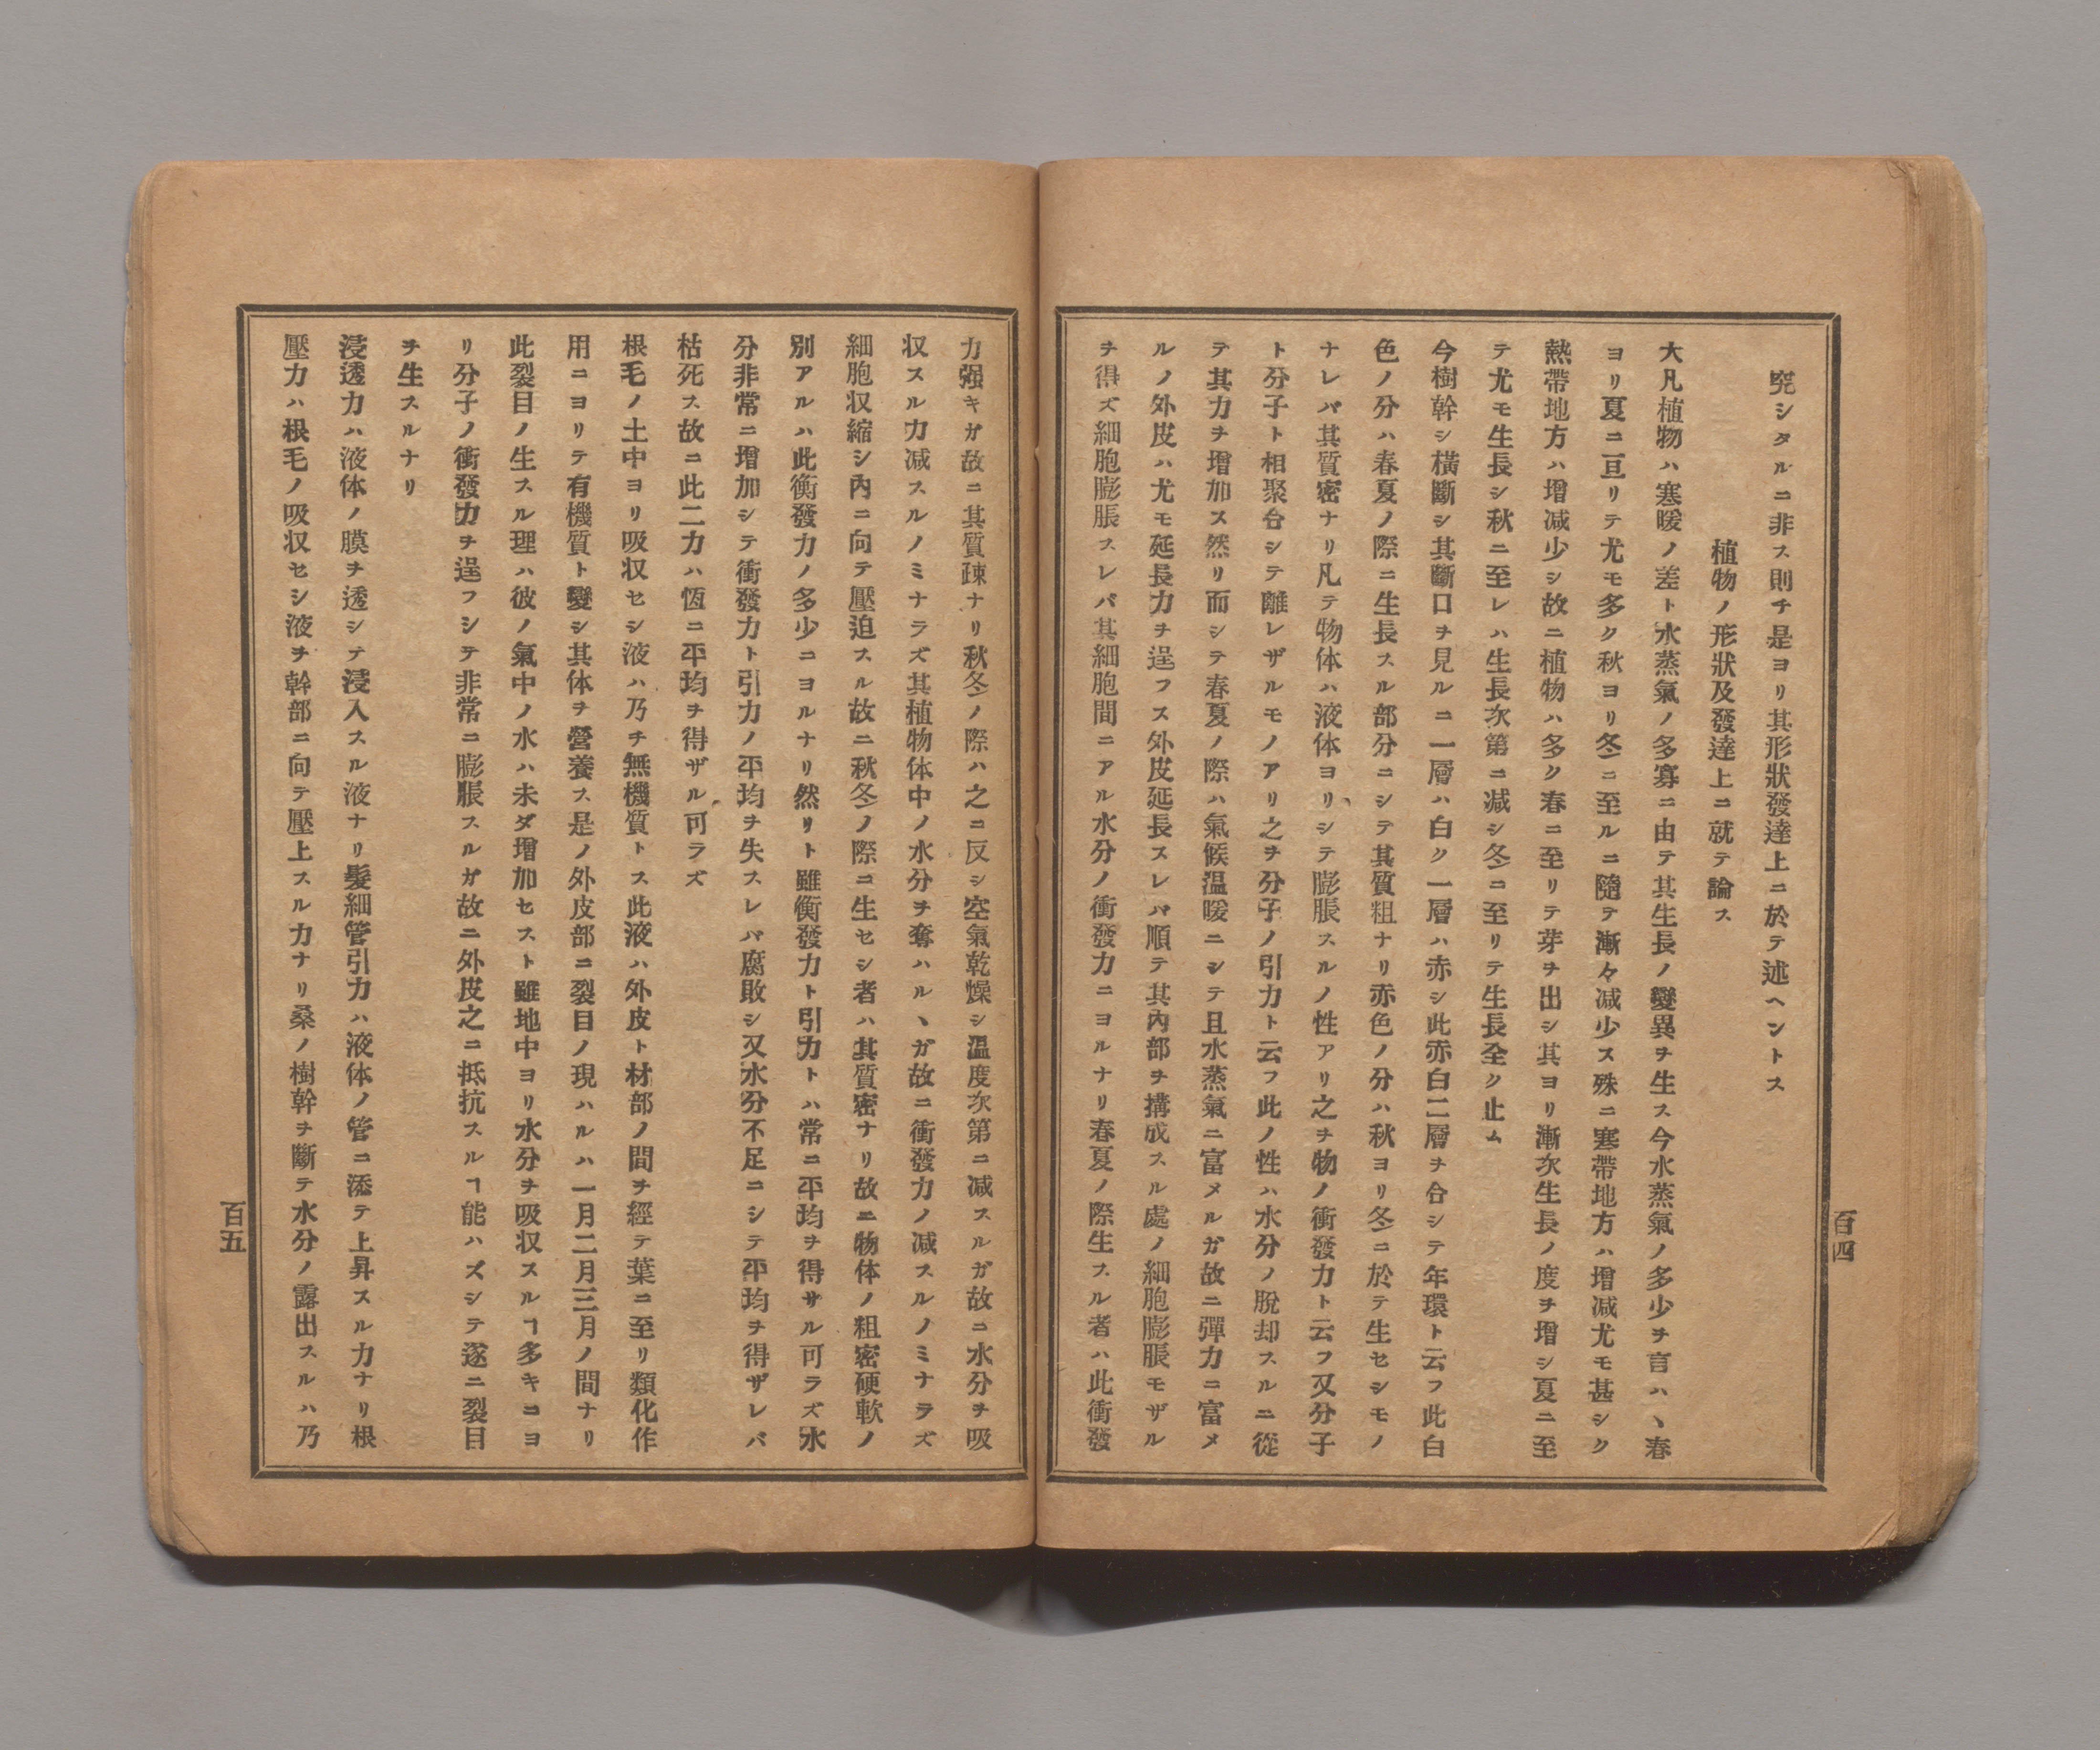 究シタルニ非ス則チ是ヨリ其形狀發達上ニ於テ述ヘントス
植物ノ形狀及發達上ニ就テ論ス
大凡植物ハ寒暖ノ差ト水蒸氣ノ多寡ニ由テ其生長ノ變異ヲ生ス今水蒸氣ノ多少ヲ言ハヽ春
ヨリ夏ニ亘リテ尤モ多ク秋ヨリ冬ニ至ルニ隨テ漸々减少ス殊ニ寒帶地方ハ增减尤モ甚シク
熱帶地方ハ增减少シ故ニ植物ハ多ク春ニ至リテ芽ヲ出シ其ヨリ漸次生長ノ度ヲ增シ夏ニ至
テ尤モ生長シ秋ニ至レハ生長次第ニ减シ冬ニ至リテ生長全ク止ム
今樹幹シ橫斷シ其斷口ヲ見ルニ一層ハ白ク一層ハ赤シ此赤白二層ヲ合シテ年環ト云フ此白
色ノ分ハ春夏ノ際ニ生長スル部分ニシテ其質粗ナリ赤色ノ分ハ秋ヨリ冬ニ於テ生セシモノ
ナレバ其質密ナリ凡テ物体ハ液体ヨリシテ膨脹スルノ性アリ之ヲ物ノ衝發力ト云フ又分子
ト分子ト相聚合シテ離レザルモノアリ之ヲ分子ノ引力ト云フ此ノ性ハ水分ノ脫却スルニ從
テ其力ヲ增加ス然リ而シテ春夏ノ際ハ氣候温暖ニシテ且水蒸氣ニ富メルガ故ニ彈力ニ富メ
ルノ外皮ハ尤モ延長力ヲ逞フス外皮延長スレバ順テ其內部ヲ搆成スル處ノ細胞膨脹モザル
ヲ得ズ細胞膨脹スレバ其細胞間ニアル水分ノ衝發力ニヨルナリ春夏ノ際生スル者ハ此衝發
百四
力强キガ故ニ其質疎ナリ秋冬ノ際ハ之ニ反シ空氣乾燥シ温度次第ニ减スルガ故ニ水分ヲ吸
収スル力减スルノミナラズ其植物体中ノ水分ヲ奪ハルヽガ故ニ衝發力ノ减スルノミナラズ
細胞収縮シ內ニ向テ壓迫スル故ニ秋冬ノ際ニ生セシ者ハ其質密ナリ故ニ物体ノ粗密硬軟ノ
別アルハ此衝發力ノ多少ニヨルナリ然リト雖衝發力ト引力トハ常ニ平均ヲ得サル可ラズ水
分非常ニ增加シテ衝發力ト引力ノ平均ヲ失スレバ腐敗シ又水分不足ニシテ平均ヲ得ザレバ
枯死ス故ニ此二力ハ恆ニ平均ヲ得ザル可ラズ
根毛ノ土中ヨリ吸収セシ液ハ乃チ無機質トス此液ハ外皮ト材部ノ間ヲ經テ葉ニ至リ類化作
用ニヨリテ有機質ト變シ其体ヲ營養ス是ノ外皮部ニ裂目ノ現ハルハ一月二月三月ノ間ナリ
此裂目ノ生スル理ハ彼ノ氣中ノ水ハ未ダ增加セスト雖地中ヨリ水分ヲ吸収スルヿ多キニヨ
リ分子ノ衝發力ヲ逞フシテ非常ニ膨脹スルガ故ニ外皮之ニ抵抗スルヿ能ハズシテ遂ニ裂目
ヲ生スルナリ
浸透力ハ液体ノ膜ヲ透シテ浸入スル液ナリ髮細管引力ハ液体ノ管ニ添テ上昇スル力ナリ根
壓力ハ根毛ノ吸収セシ液ヲ幹部ニ向テ壓上スル力ナリ桑ノ樹幹ヲ斷テ水分ノ露出スルハ乃
百五